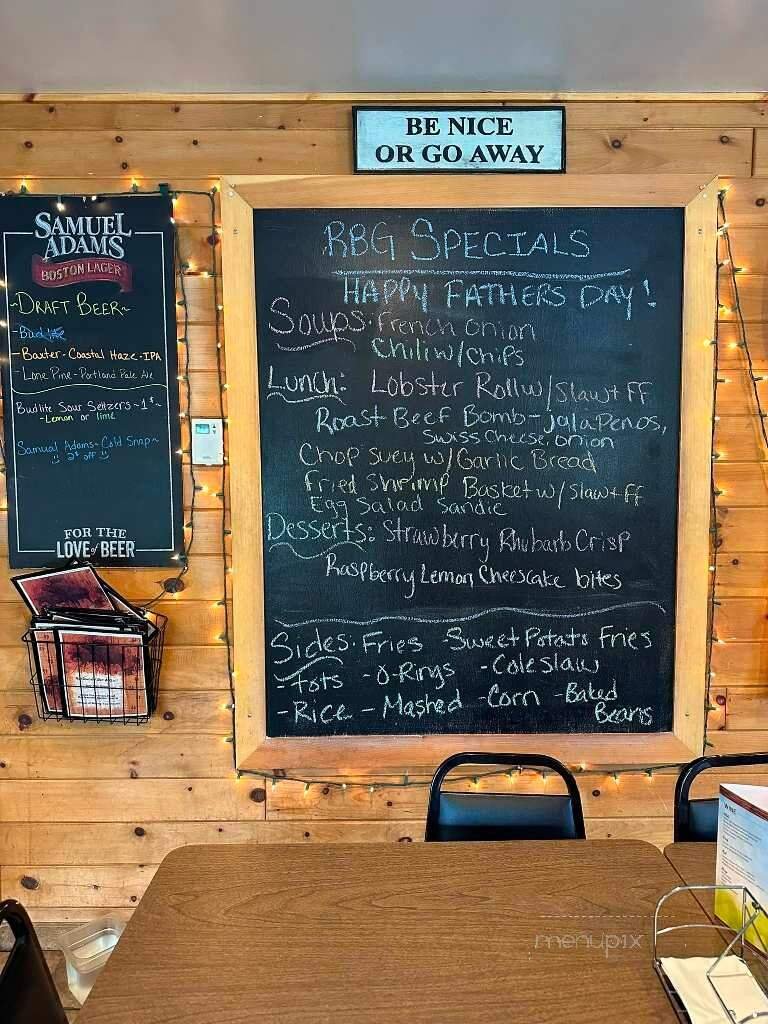 BE NICE
OR GO AWAY
SAMUEL
ADAMS
BOSTON LAGER
~DRAFT BEER~
-Bud lite
-Baxter-Coastal Haze-IPA
-Lone Pine-Portland Pale Ale
Bud lite Sour Seltzers ~1$~
-Lemon or lime
Samual Adams-Cold Snap~
2$ off
FOR THE
LOVE of BEER
RBG SPECIALS
HAPPY FATHERS DAY!
Soups. French Onion
Chili w/chips
Lunch: Lobster Roll w/Slaw+FF
Roast Beef Bomb-Jalapenos,
Swiss Cheese, onion
Chop Suey w/Garlic Bread
Fried Shrimp Basket w/Slaw+FF
Egg Salad Sandie
Desserts: Strawberry Rhubarb Crisp
Raspberry Lemon Cheescake bites
Sides. Fries Sweet Potato Fries
-Tots -O-Rings -Coleslaw
-Rice -Mashed -Corn -Baked
Beans
WINE
menupix